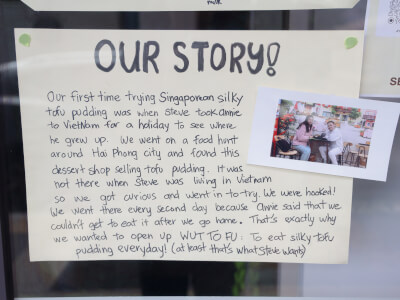 OUR STORY!
Our first time trying Singaporean silky
tofu pudding was when Steve took Annie
to Vietnam for a holiday to see where
he grew up. We went on a food hunt
around Hai Phong city and found this
dessert shop selling tofu pudding. It was
not there when Steve was living in Vietnam
so we got curious and went in to try. We were hooked!
We went there every second day because Annie said that we
couldn't get to eat it after we go home. That's exactly why
we wanted to open up WUT TO FU: To eat silky tofu
pudding everyday! (at least that's what Steve wants)
SE